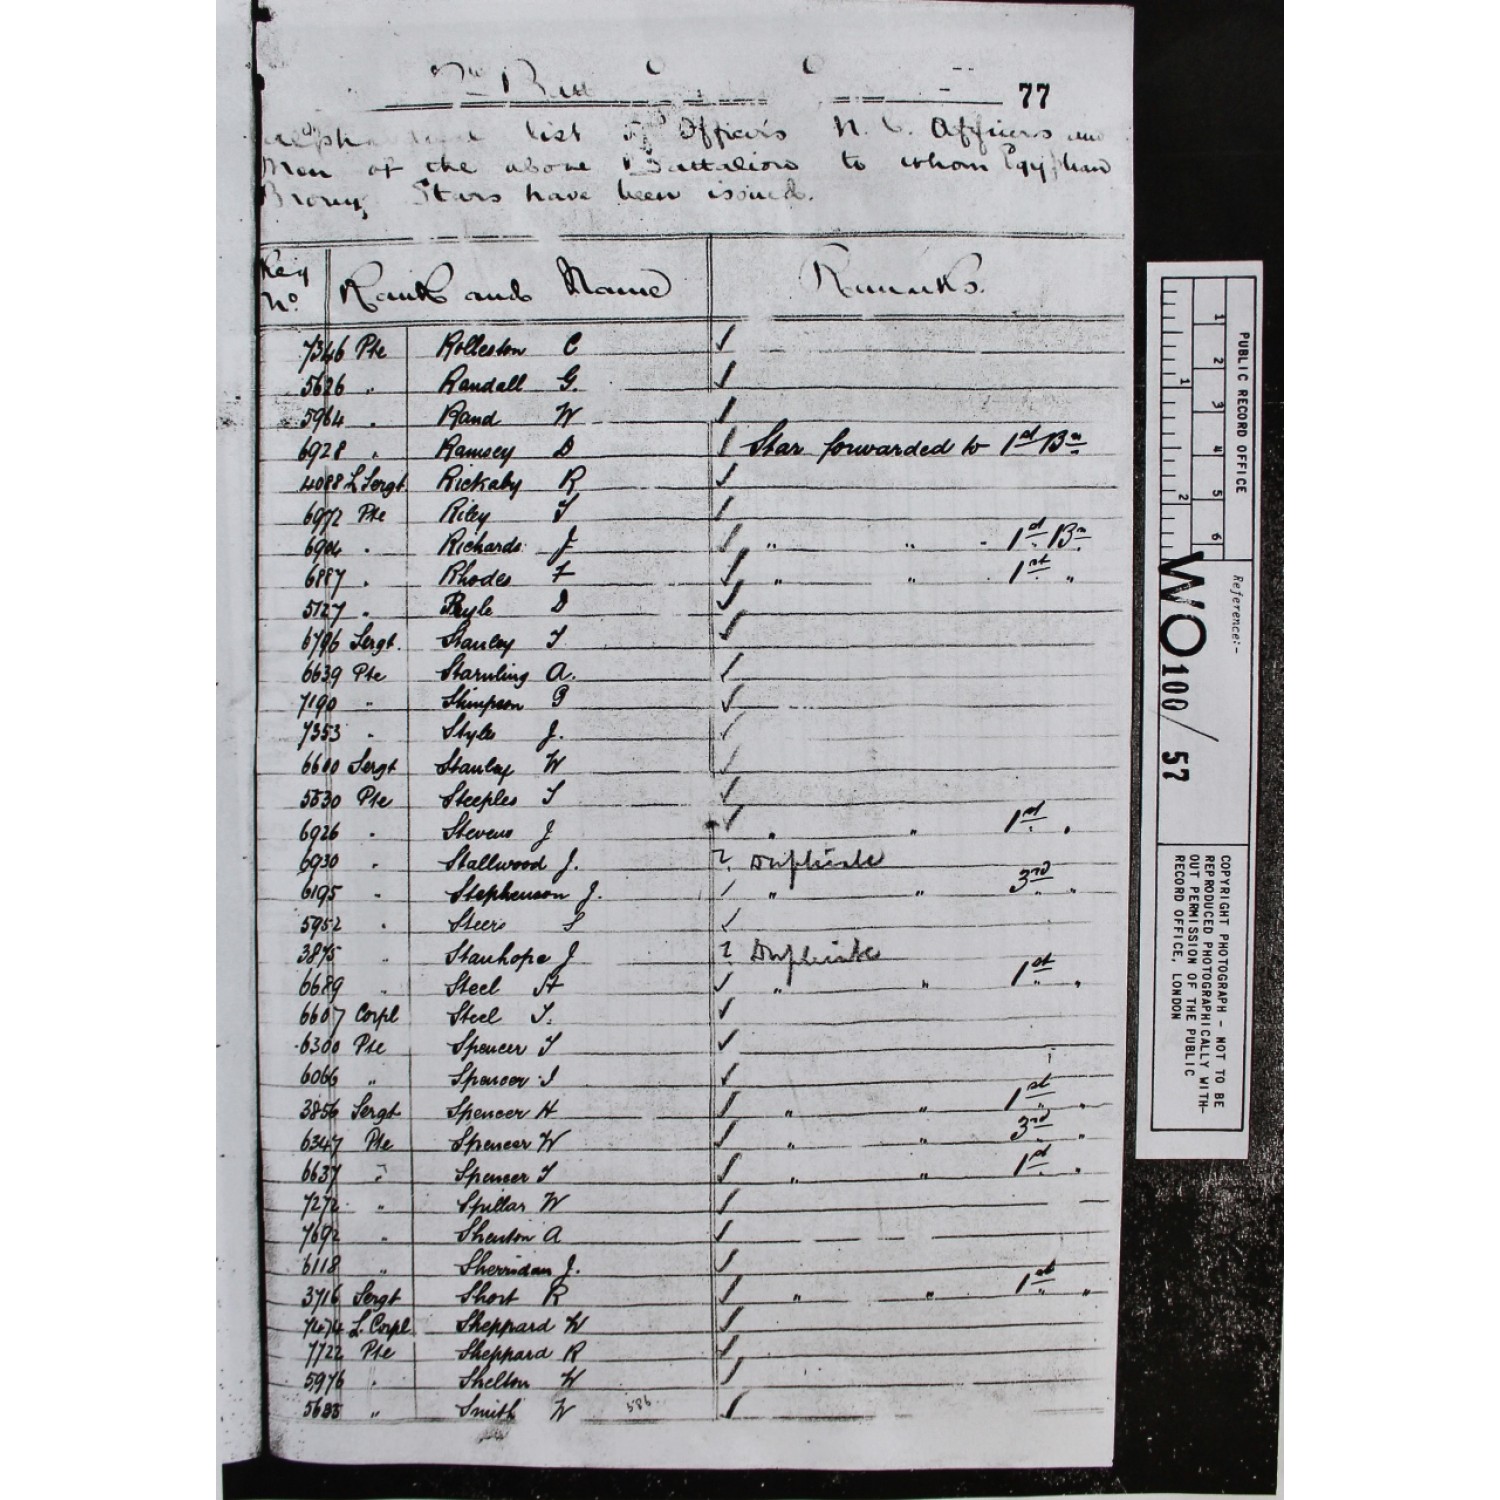 77
list of Officers N. C. Officers and
Men of the above Battalion to whom Egyptian
Bronze Stars have been issued.
Reg No. Rank and Name Remarks.
7346 Pte Rolleston C ✓
5626 " Randall G. ✓
5964 " Rand W ✓
6928 " Ramsey D ✓ Star forwarded to 1st Bn
4088 L Sergt Rickaby R ✓
6972 Pte Riley T ✓
6904 " Richards J ✓ " " " 1st Bn
6887 " Rhodes F ✓ " " " 1st "
5127 " Ryle D ✓
6796 Sergt. Stanley T ✓
6639 Pte Starmling A. ✓
7190 " Stimpson G ✓
7353 " Styles J. ✓
6600 Sergt Stanley W ✓
5830 Pte Steeples T ✓
6926 " Stevens J ✓ " " 1st "
6930 " Stallwood J. ? Duplicate
6195 " Stephenson J. ✓ " " 3rd "
5952 " Steers S ✓
3875 " Stanhope J ? Duplicate
6689 " Steel H ✓ " " 1st "
6607 Corpl Steel T. ✓
6300 Pte Spencer T ✓
6066 " Spencer I ✓
3856 Sergt Spencer H ✓ " " 1st "
6347 Pte Spencer W ✓ " " 3rd "
6637 " Spencer T ✓ " " 1st "
7272 " Spillar W ✓
7692 " Shenton A ✓
6118 " Sherridan J. ✓
3716 Sergt Short R ✓ " " 1st "
7474 L. Corpl Sheppard W ✓
7722 Pte Sheppard R ✓
5976 " Shelton W ✓
5685 " Smith W 586 ✓
PUBLIC RECORD OFFICE
1 2 3 4 5 6
1 2
Reference:-
WO 100/57
COPYRIGHT PHOTOGRAPH - NOT TO BE
REPRODUCED PHOTOGRAPHICALLY WITH-
OUT PERMISSION OF THE PUBLIC
RECORD OFFICE, LONDON